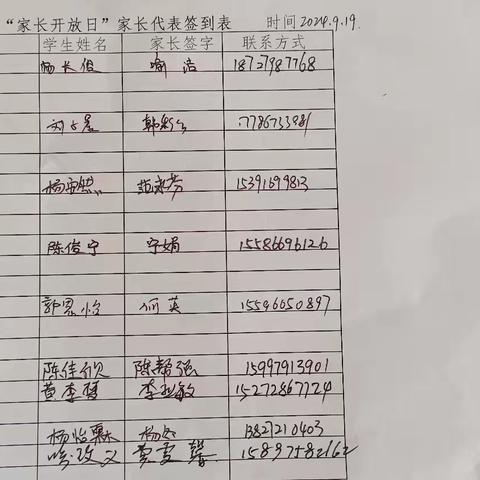 “家长开放日”家长代表签到表 时间 2024.9.19.
学生姓名 家长签字 联系方式
杨长俊 喻洁 18727987768
韩 7786733981
杨 范永芬 15391699813
陈俊宁 宁娟 15586696126
郭思怡 何英 15546050897
陈佳欣 陈 强 15997913901
黄李 李 敏 15272867724
杨怡霖 杨 13827210403
黄雪馨 15897582162